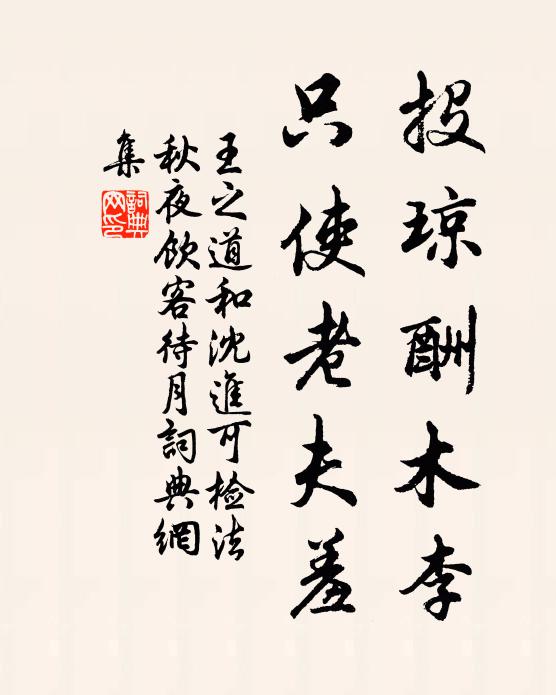 投琼酬木李
只使老夫羞
王之道和沈進可检法
秋夜飲客待月詞典網
集
詞典網印